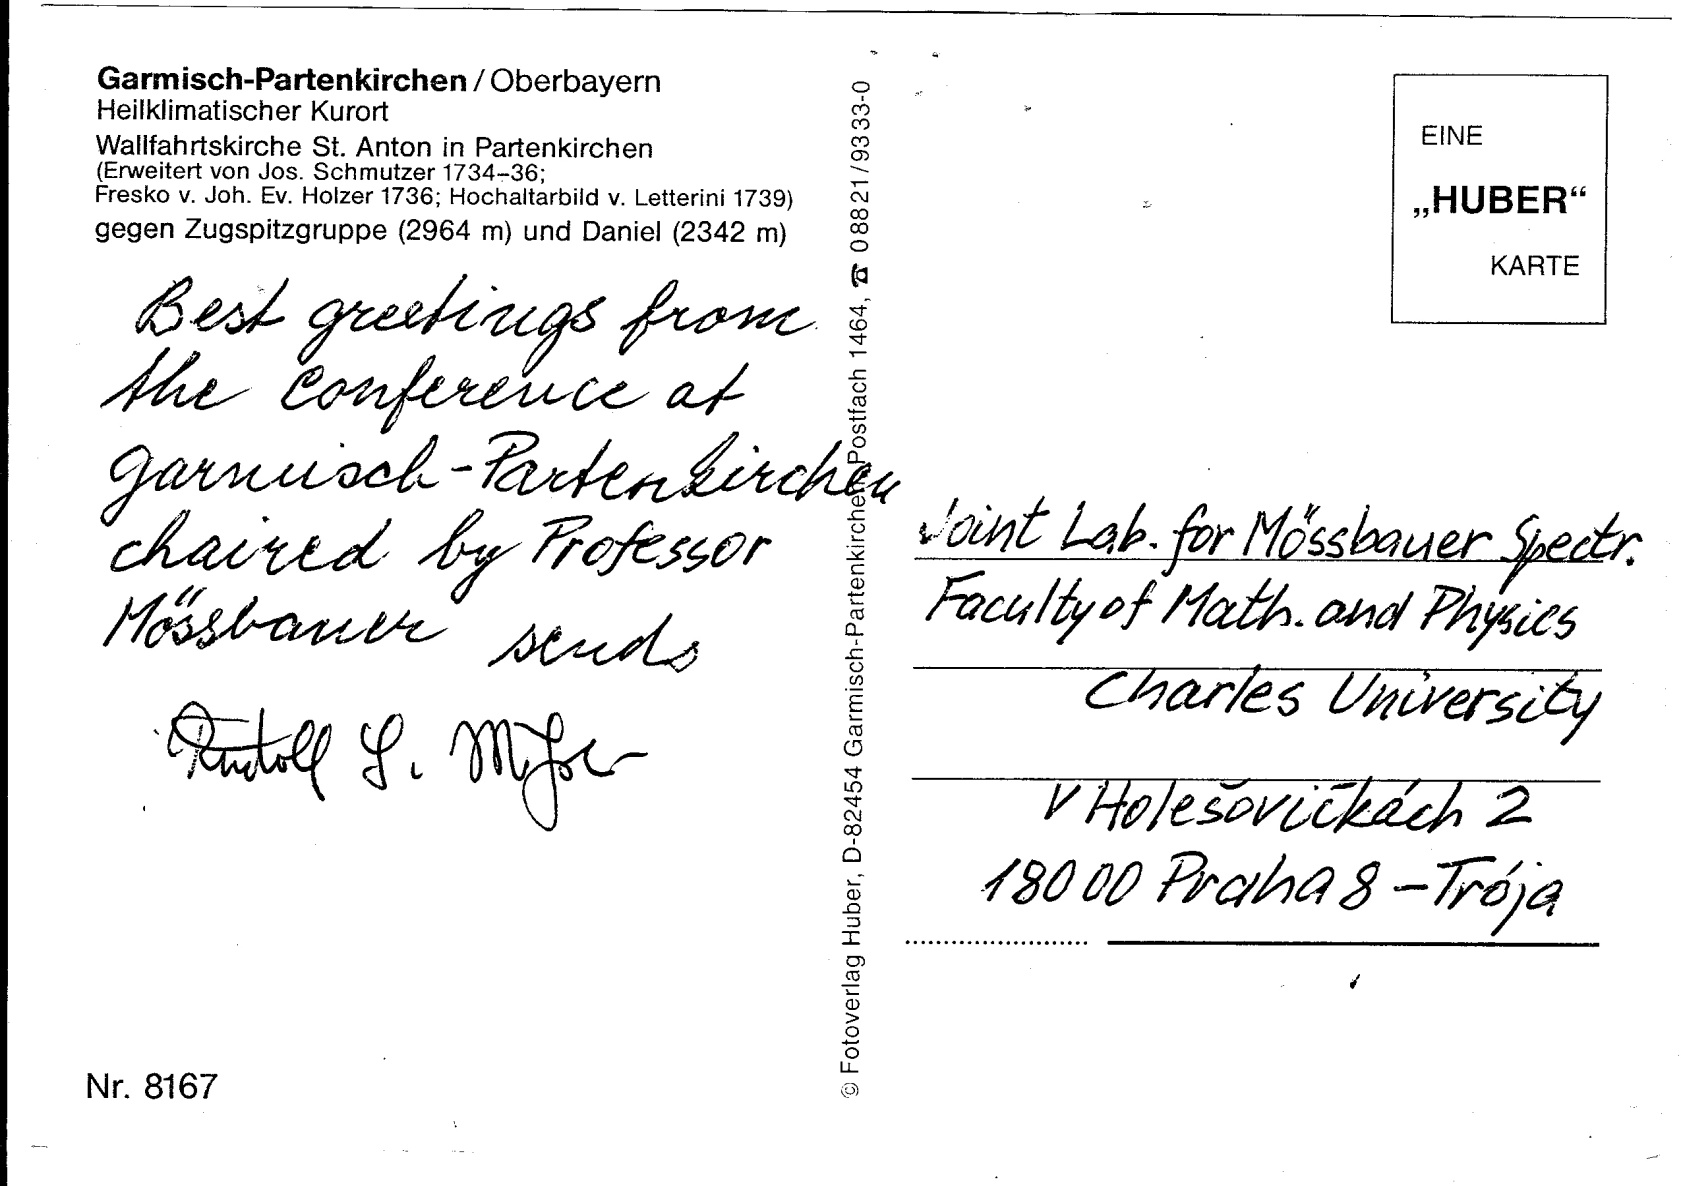 Garmisch-Partenkirchen / Oberbayern
Heilklimatischer Kurort
Wallfahrtskirche St. Anton in Partenkirchen
(Erweitert von Jos. Schmutzer 1734–36;
Fresko v. Joh. Ev. Holzer 1736; Hochaltarbild v. Letterini 1739)
gegen Zugspitzgruppe (2964 m) und Daniel (2342 m)
Best greetings from
the conference at
Garmisch-Partenkirchen
chaired by Professor
Mössbauer sends
Rudolf L.
Nr. 8167
© Fotoverlag Huber, D-82454 Garmisch-Partenkirchen, Postfach 1464, ☎ 08821/9333-0
EINE
„HUBER“
KARTE
Joint Lab. for Mössbauer Spectr.
Faculty of Math. and Physics
Charles University
V Holešovičkách 2
18000 Praha 8 – Trója